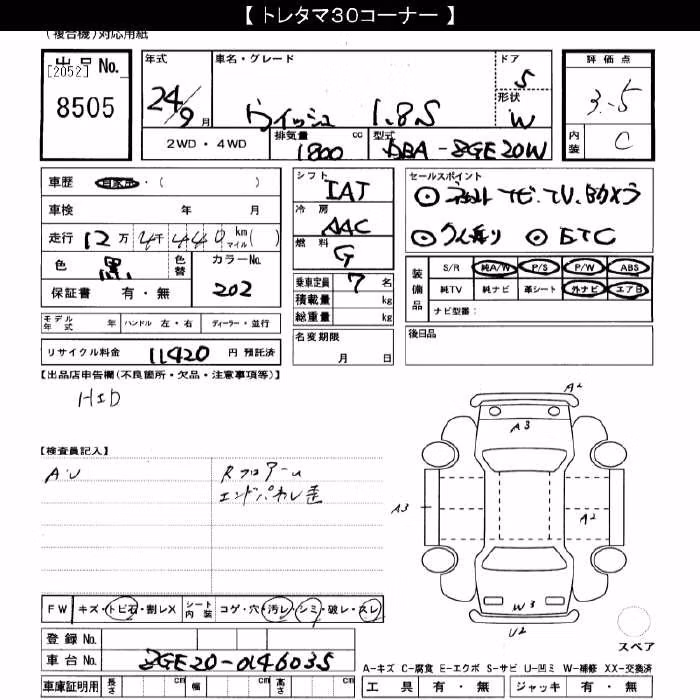 【 トレタマ30コーナー 】
(複合機)対応用紙
出品 No.
[2052]
8505
年式
24/9月
車名・グレード
ウィッシュ 1.8S
ドア
5
形状
W
評価点
3.5
内装
C
2WD・4WD
排気量 1800 cc
型式 DBA-ZGE20W
車歴 自家用・( )
車検 年 月
走行 12万4千440 km マイル ( )
色 黒
色替
カラーNo.
202
保証書 有・無
モデル年式 年 ハンドル 左・右 ディーラー・並行
リサイクル料金 11420 円 預託済
シフト
IAT
冷房
AAC
燃料
G
乗車定員 7 名
積載量 kg
総重量 kg
名変期限
月 日
セールスポイント
ナビ.TV.
ETC
装備品
S/R 純A/W P/S P/W ABS
純TV 純ナビ 革シート 外ナビ エアB
ナビ型番:
後日品
【出品店申告欄(不良箇所・欠品・注意事項等)】
HID
【検査員記入】
A・U
Rフロアー
エンドパネル歪
A2
A3
A3
A2
W3
U2
スペア
FW キズ・トビ石・割レX シート内装 コゲ・穴・汚レ・シミ・破レ・スレ
登録 No.
車台 No. ZGE20-0146035
車庫証明用 長さ cm 幅 cm 高さ cm
A-キズ C-腐食 E-エクボ S-サビ U-凹ミ W-補修 XX-交換済
工具 有・無 ジャッキ 有・無